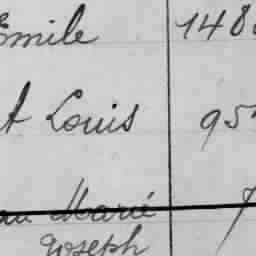 Emile 148
t Louis 95
au Marie 7
Joseph